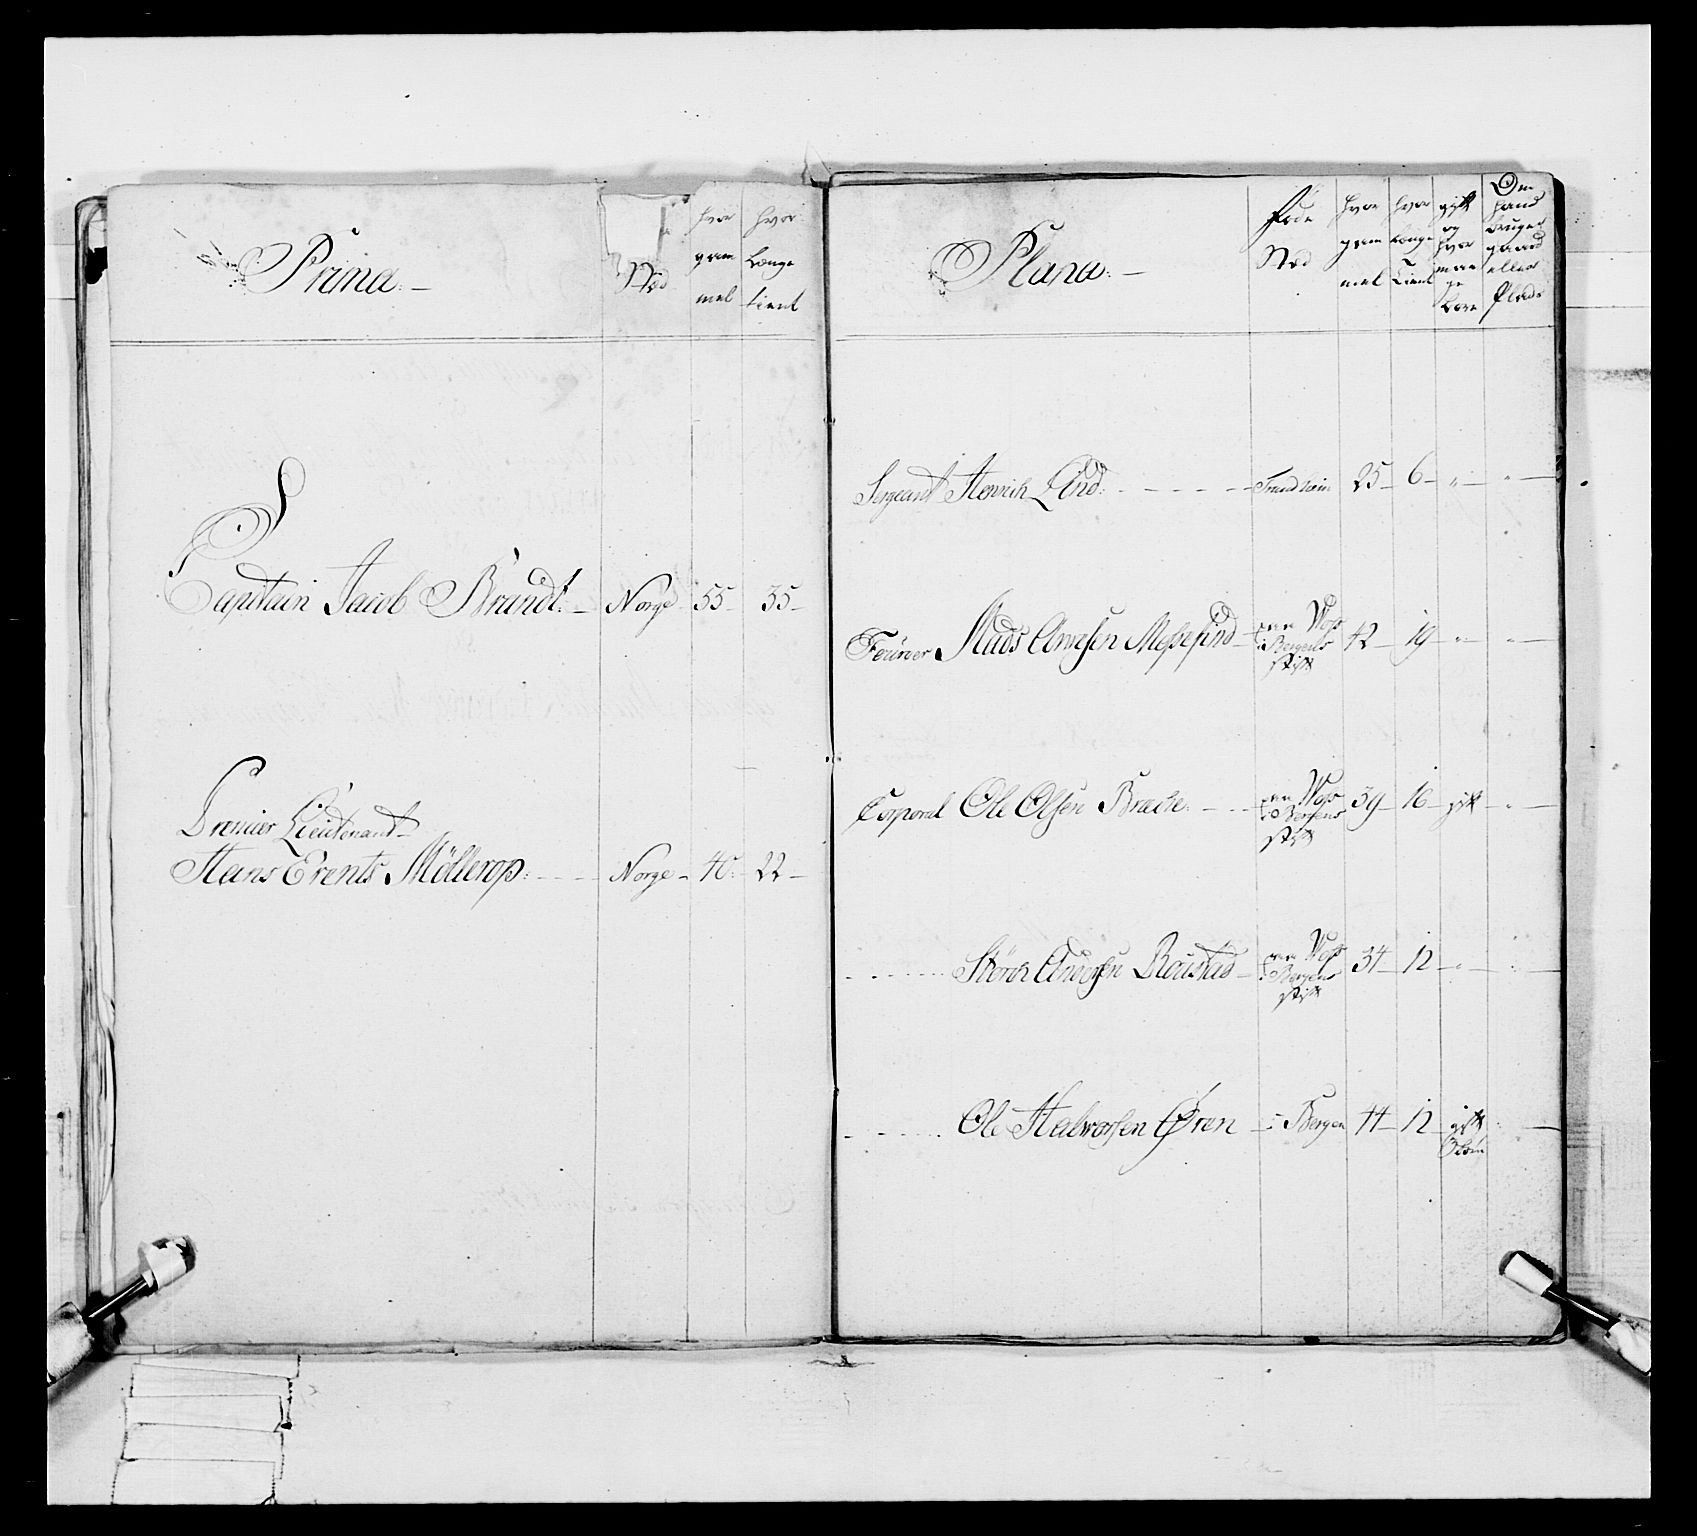 Prima
Stæd
hvor
gam
mel
hvor
Længe
tient
Capitain Jacob Brandt Norge 55 35
Premier Lieutenant
Hans Erents Möllerop Norge 40 22
Plana
Føde
Stæd
hvor
gam
mel
hvor
Længe
Tient
gift
og
hvor
man
ge
Børn
Om
hand
bruger
gaard
eller
Plads
Sergeant Henrich Lind Trundheim 25 6
Fourier Mads Arnesen Mestesind paa Woss
i Bergens
stift 42 19
Corporal Ole Olsen Brache paa Woss
i Bergens
stift 39 16 gift
Störch Andersen Roustad paa Woss
i Bergens
stift 34 12
Ole Halworsen Øren i Bergen 44 12 gift